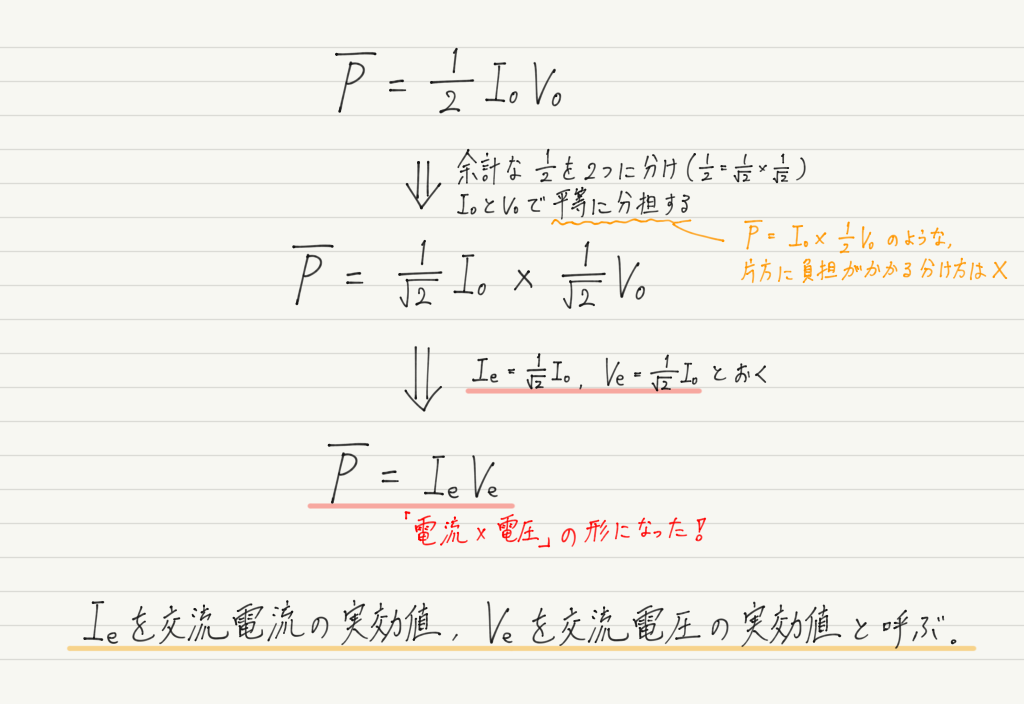 P̅ = 1/2 I₀V₀
余計な 1/2 を2つに分け (1/2 = 1/√2 × 1/√2)
I₀とV₀で平等に分担する
P̅ = I₀ × 1/2 V₀ のような,
片方に負担がかかる分け方は×
P̅ = 1/√2 I₀ × 1/√2 V₀
Iₑ = 1/√2 I₀, Vₑ = 1/√2 I₀ とおく
P̅ = IₑVₑ
「電流×電圧」の形になった!
Iₑを交流電流の実効値, Vₑを交流電圧の実効値と呼ぶ.